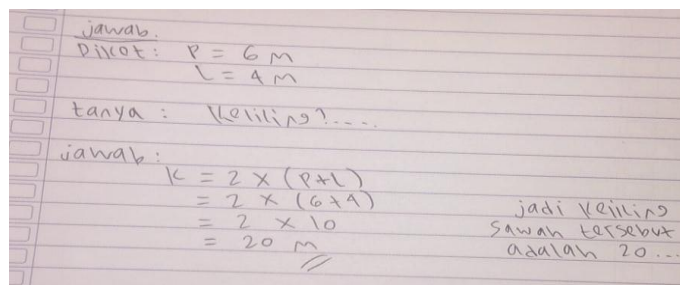 jawab.
Dikot: P = 6 M
L = 4 M
tanya : Keliling?.....
jawab:
K = 2 x (P+L)
= 2 x (6+4)
= 2 x 10
= 20 M
jadi keliling
sawah tersebut
adalah 20...